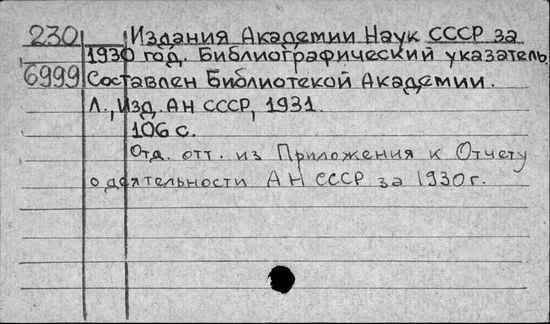 230 Издания Академии Наук СССР за
1930 год. Библиографический указатель.
6999 Составлен Библиотекой Академии.
Л., Изд. АН СССР, 1931.
106 с.
Отд. отт. из Приложения к Отчету
о деятельности АН СССР за 1930 г.